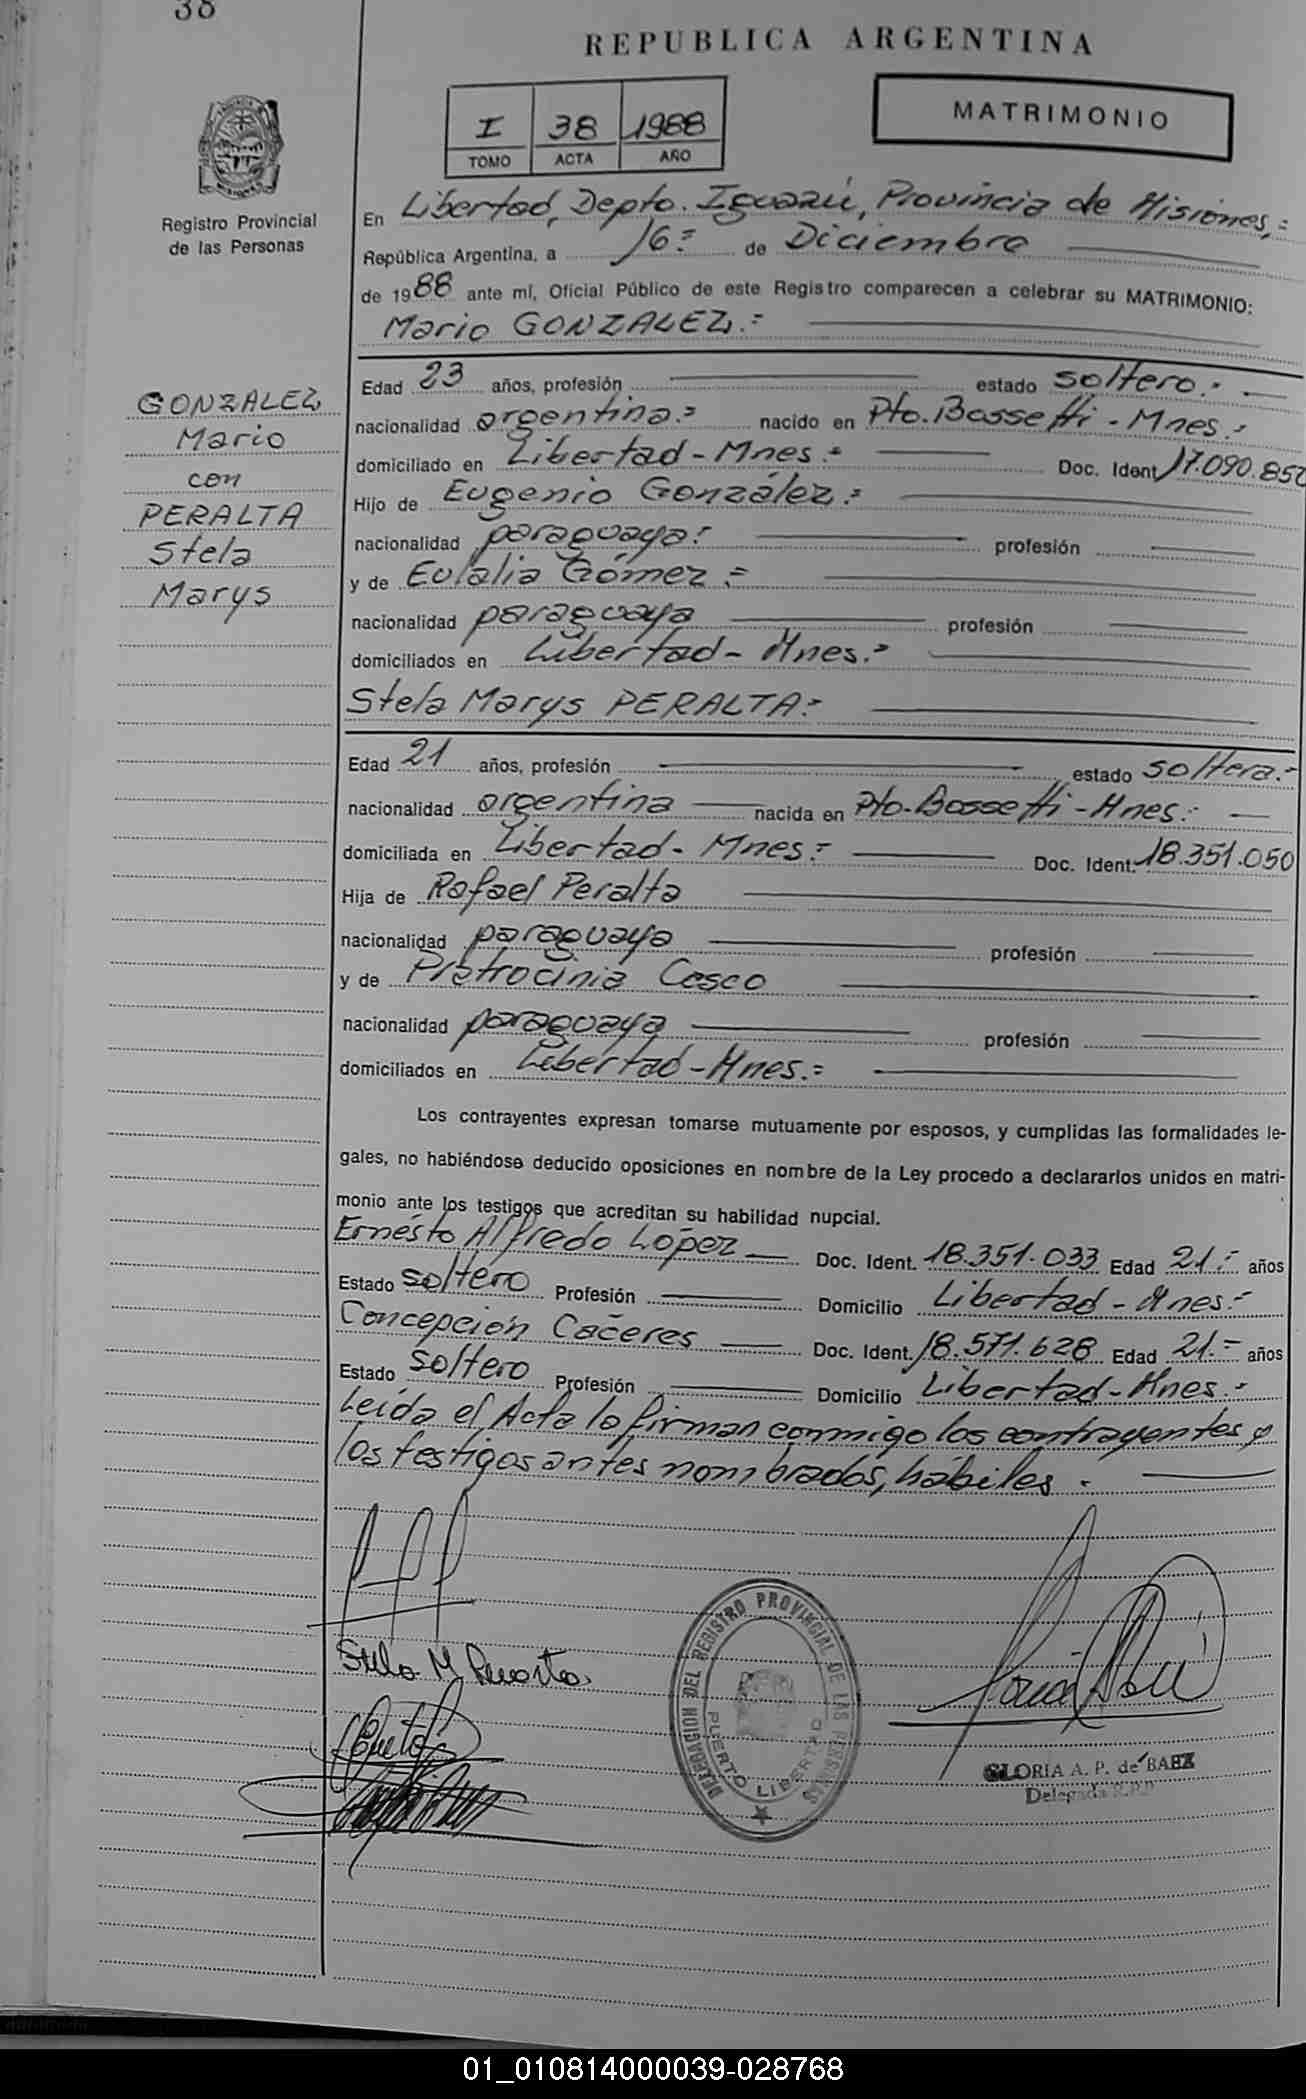 38
REPUBLICA ARGENTINA
I 38 1988
TOMO ACTA AÑO
MATRIMONIO
Registro Provincial
de las Personas
GONZALEZ
Mario
con
PERALTA
Stela
Marys
En Libertad, Depto. Iguazú, Provincia de Misiones,=
República Argentina, a 16= de Diciembre
de 1988 ante mí, Oficial Público de este Registro comparecen a celebrar su MATRIMONIO:
Mario GONZALEZ.=
Edad 23 años, profesión estado soltero.-
nacionalidad argentina= nacido en Pto. Bossetti - Mnes.-
domiciliado en Libertad - Mnes.= Doc. Ident. 17.090.852
Hijo de Eugenio González.=
nacionalidad paraguaya. profesión
y de Eulalia Gómez.=
nacionalidad paraguaya profesión
domiciliados en Libertad - Mnes.=
Stela Marys PERALTA=
Edad 21 años, profesión estado soltera.-
nacionalidad argentina nacida en Pto. Bossetti - Mnes.-
domiciliada en Libertad - Mnes.= Doc. Ident. 18.351.050
Hija de Rafael Peralta
nacionalidad paraguaya profesión
y de Cesco
nacionalidad paraguaya profesión
domiciliados en Libertad - Mnes.=
Los contrayentes expresan tomarse mutuamente por esposos, y cumplidas las formalidades le-
gales, no habiéndose deducido oposiciones en nombre de la Ley procedo a declararlos unidos en matri-
monio ante los testigos que acreditan su habilidad nupcial.
Ernésto Alfredo López Doc. Ident. 18.351.033 Edad 21.- años
Estado soltero Profesión Domicilio Libertad - Mnes.-
Concepción Caceres Doc. Ident. 18.571.628 Edad 21.- años
Estado soltero Profesión Domicilio Libertad - Mnes.-
Leída el Acta lo firman conmigo los contrayentes y
los testigos antes nombrados, hábiles.
Stela M
DELEGACION DEL REGISTRO PROVINCIAL DE LAS PERSONAS
PUERTO LIBERTAD
GLORIA A. P. de BAEZ
Delegada R.P.P.
01_010814000039-028768